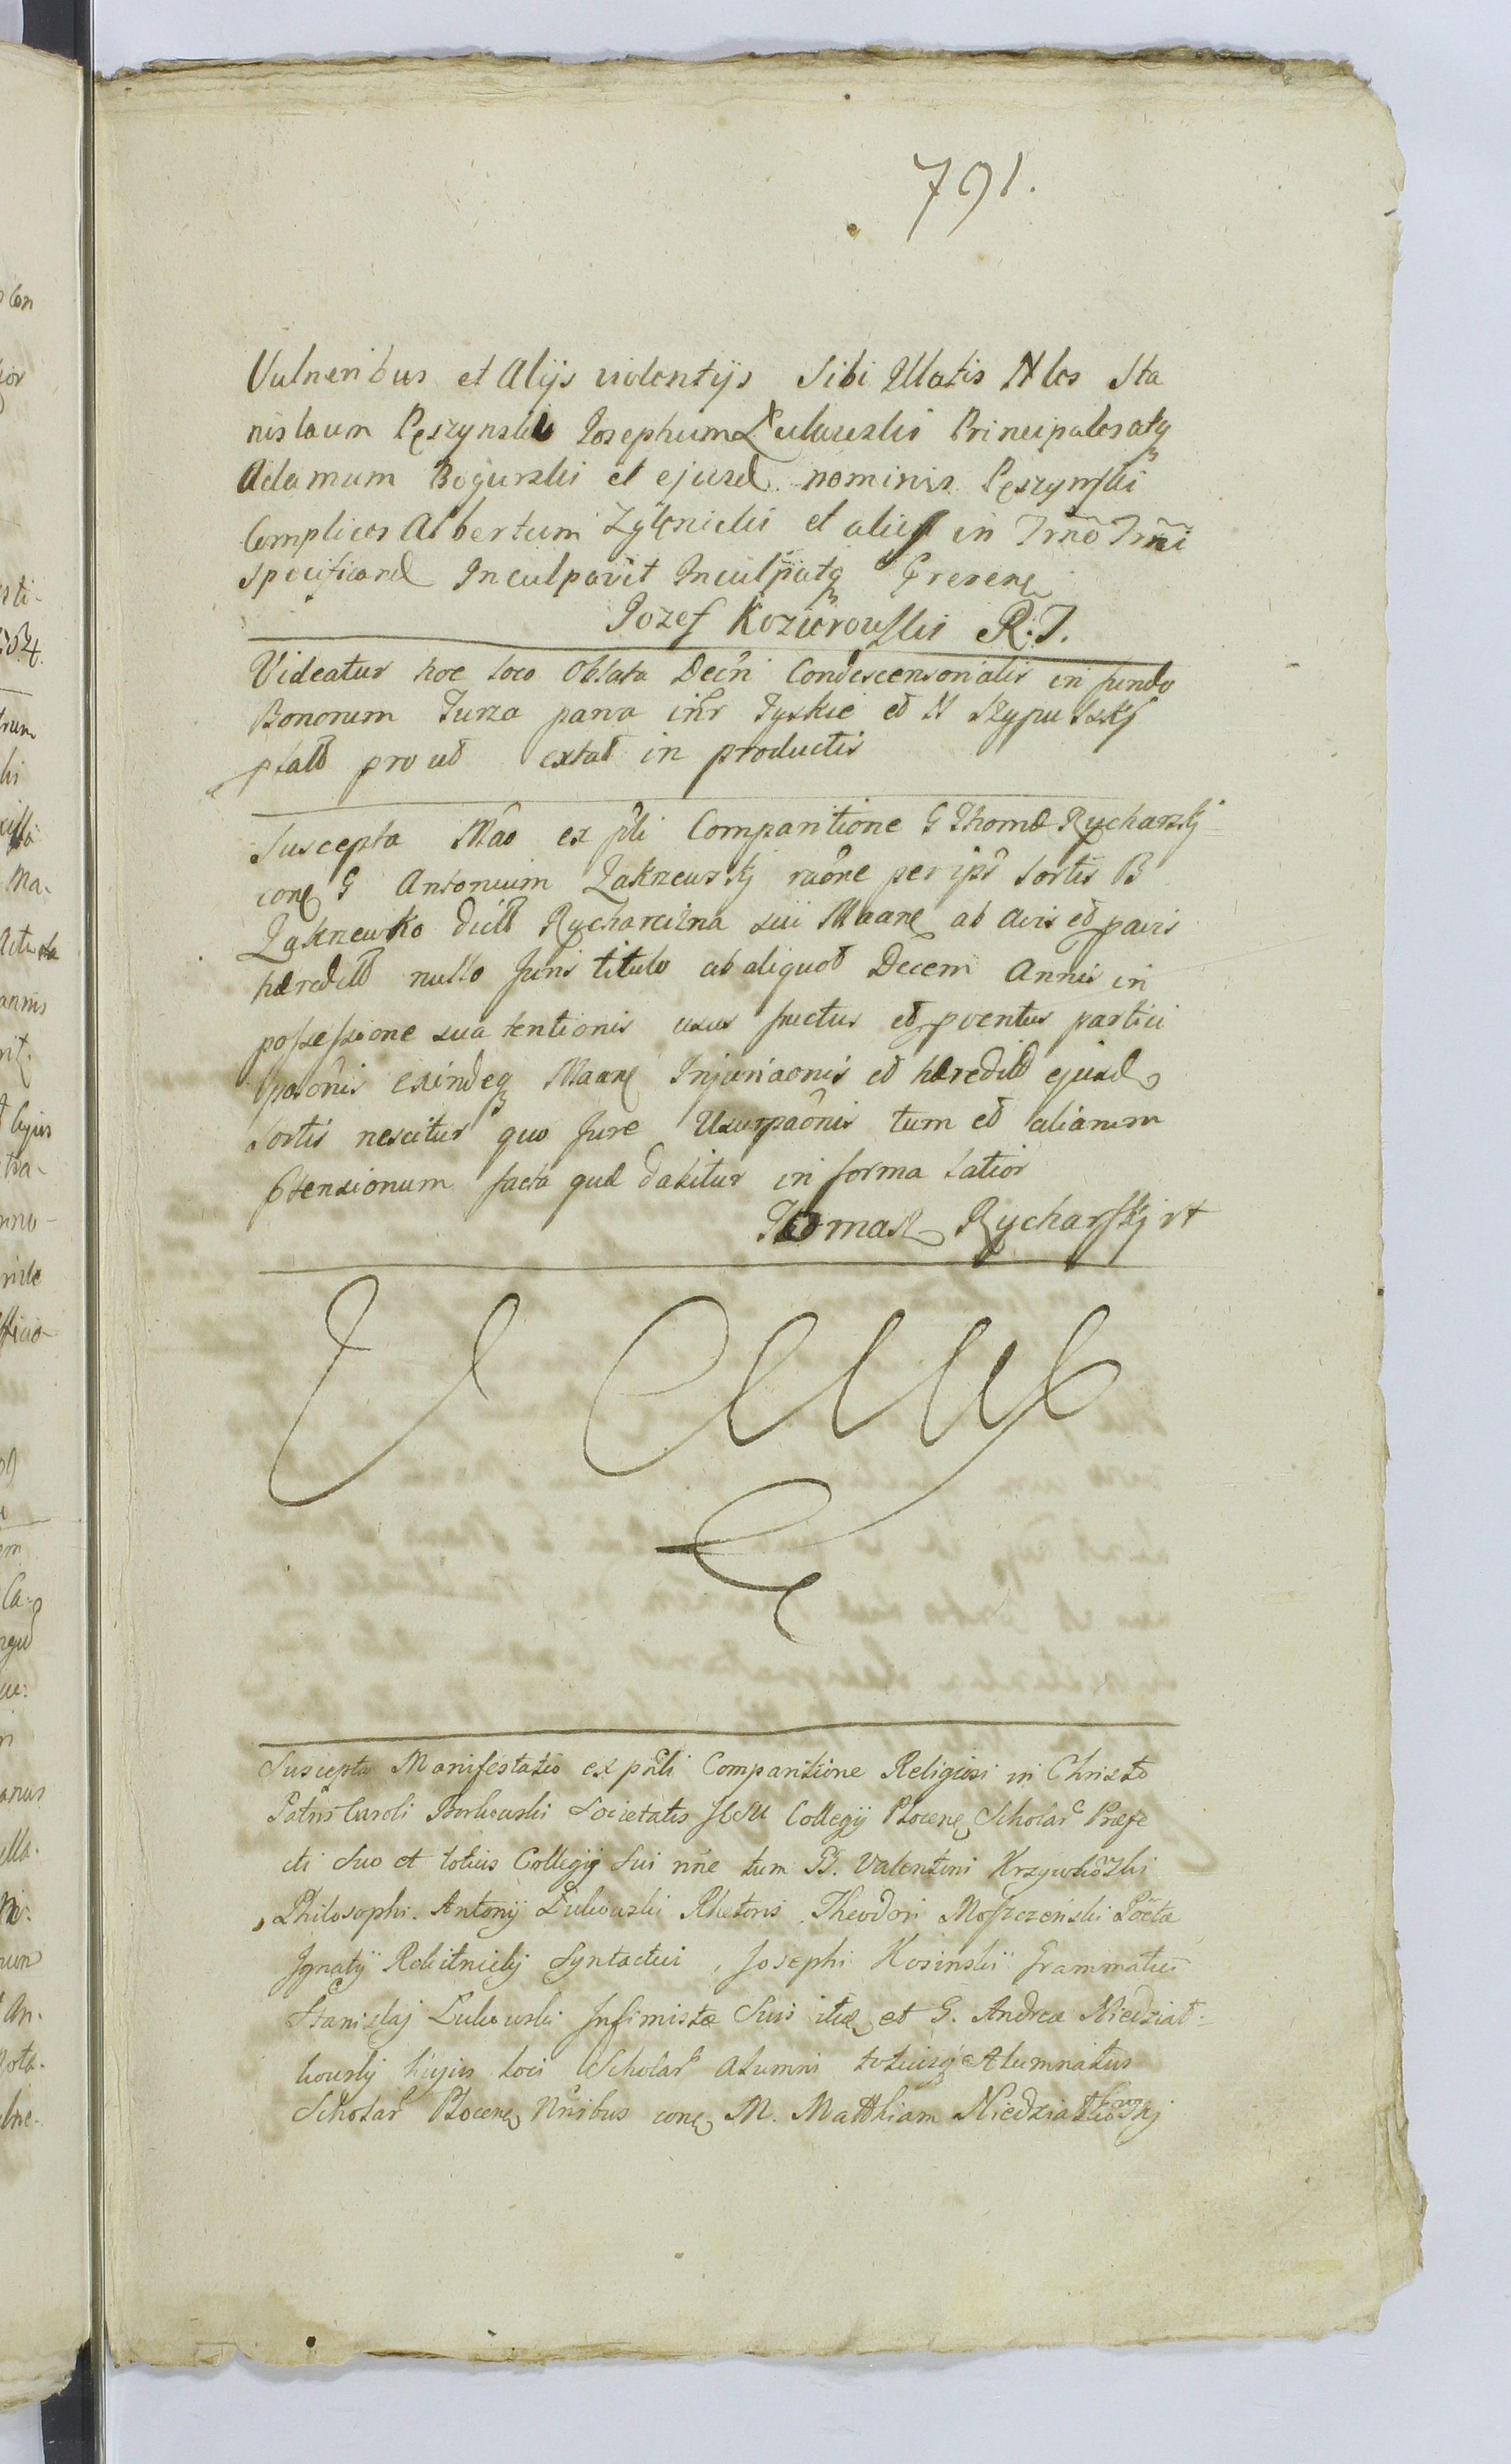 791.
Vulneribus et Alijs violentijs Sibi Illatis Nlos Sta
nislaum Pęszynski Josephum Łukowski Principales atq
Adamum Bogurski et ejusd nominis Pęszynski
Complices Albertum et alios in Trno Trni
specificand Inculpavit Inculpatq Presens
Jozef Kozicrowski R.J.
Videatur hoc loco Oblata Decri Condescensorialis in fundo
Bonorum Turza parva intr Tyskie et N Szypulskj
pfatt prout extat in productis
Suscepta Mao ex pli Comparitione G Thomæ Rycharskj
conę G Antonium Zakrzewskj raône per ipŝ Sortis B
Zakrzewko dictt Rycharcizna sui Maanę ab avis et pavis
hæreditt nullo Juris titulo ab aliquot Decem Annis in
possessione sua tentionis usus fructus et pventus partici
paônis exindeq Maanę Injuriaonis et hæreditt ejusd
Sortis nescitur quo Jure Usurpaônis tum et aliarum
Ptensionum facta quæ dabitur in forma latior
Tomasz Rycharskj rt
Suscepta Manifestatio ex pnli Comparitione Religiosi in Christo
Patris Caroli Borkowski Societatis JESU Collegij Plocenę Scholar Præfe
cti Suo et totius Collegij Sui nne tum Valentini Krzywkowski
Philosophi. Antonij Łukowski Rhetoris, Theodori Moszczenski Poëta
Ignatij Rokitnickj Syntactici, Josephi Kosinski Grammatici
Stanislaj Łukowski Infimistæ Suis et G. Andreæ Niedział-
kowskj hujus loci Scholar Alumni totiusq Alumnatus
Scholar Plocenę Nnibus conę M. Matthiam Niedziałkowskj